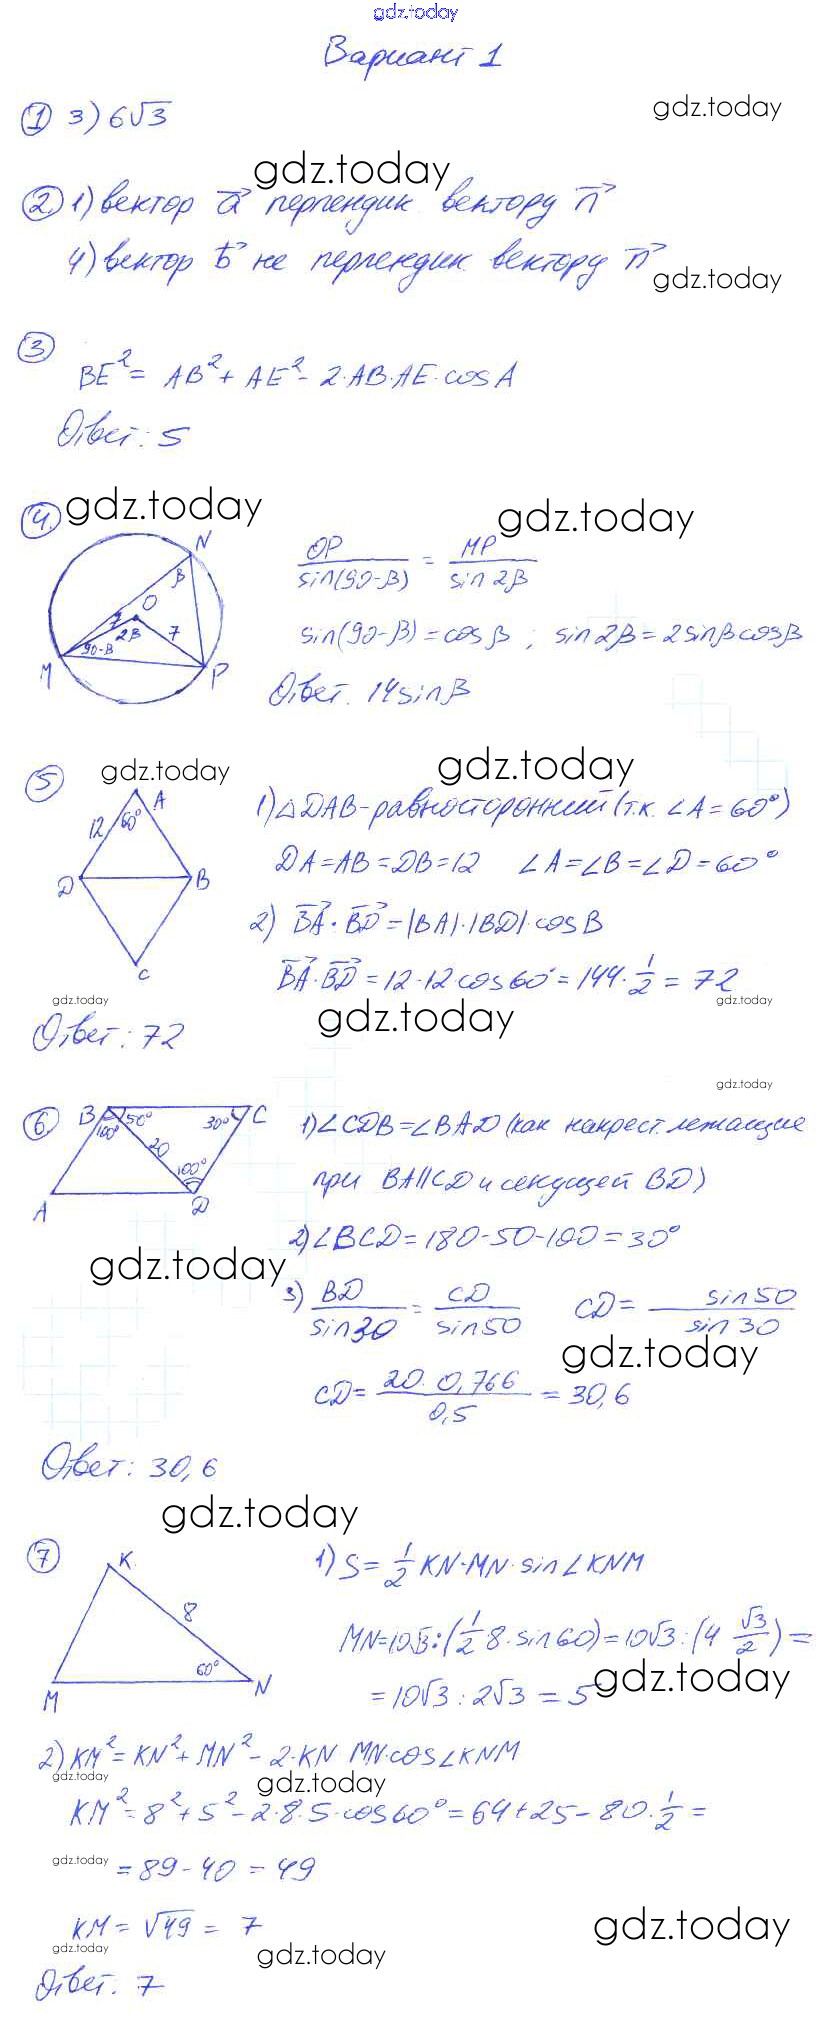 gdz.today
Вариант 1
① 3) 6√3
gdz.today
gdz.today
② 1) вектор a⃗ перпендик. вектору n⃗
4) вектор b⃗ не перпендик. вектору n⃗
gdz.today
③
BE² = AB² + AE² - 2·AB·AE·cosA
Ответ: 5
④ gdz.today
gdz.today
N
β
O
7
2β
7
90-β
M
P
OP/sin(90-β) = MP/sin2β
sin(90-β) = cosβ ; sin2β = 2sinβcosβ
Ответ. 14sinβ
⑤ gdz.today
gdz.today
A
12
60°
D
B
C
1) △DAB-равносторонний (т.к. ∠A=60°)
DA=AB=DB=12 ∠A=∠B=∠D=60°
2) BA⃗·BD⃗ = |BA|·|BD|·cosB
BA⃗·BD⃗ = 12·12cos60° = 144·1/2 = 72
gdz.today
gdz.today
gdz.today
Ответ: 72
gdz.today
⑥
B
50°
100°
20
30°
C
100°
A
D
1) ∠CDB=∠BAD (как накрест. лежащие
при BA||CD и секущей BD)
2) ∠BCD=180-50-100=30°
gdz.today
3) BD/sin30 = CD/sin50 CD= sin50/sin30
gdz.today
CD= 20·0,766/0,5 = 30,6
Ответ: 30,6
gdz.today
⑦
K
8
60°
M
N
1) S= 1/2 KN·MN·sin∠KNM
MN=10√3:(1/2 8·sin60)=10√3:(4 √3/2)=
=10√3:2√3=5
gdz.today
2) KM²=KN²+MN²-2·KN MN·cos∠KNM
gdz.today
gdz.today
KM²=8²+5²-2·8·5·cos60°=64+25-80·1/2=
gdz.today
=89-40=49
KM=√49=7
gdz.today
gdz.today
gdz.today
Ответ. 7